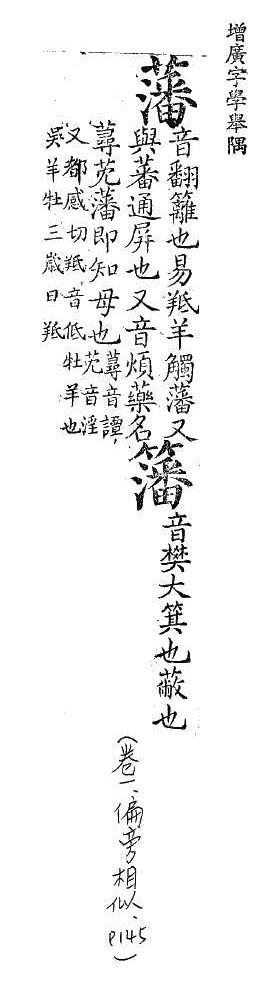 增廣字學舉隅
藩
音翻籬也易羝羊觸藩又
與蕃通屏也又音煩藥名
蕁藩即知母也
蕁音譚
音淫
又都感切羝音低牡羊也
吳羊牡三歲曰羝
籓
音樊大箕也蔽也
(卷一、偏旁相似、P145)